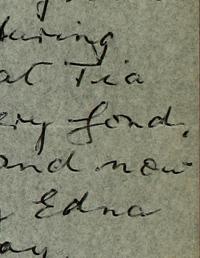 turing
at Tia
ery fond,
and now
Edna
ay.